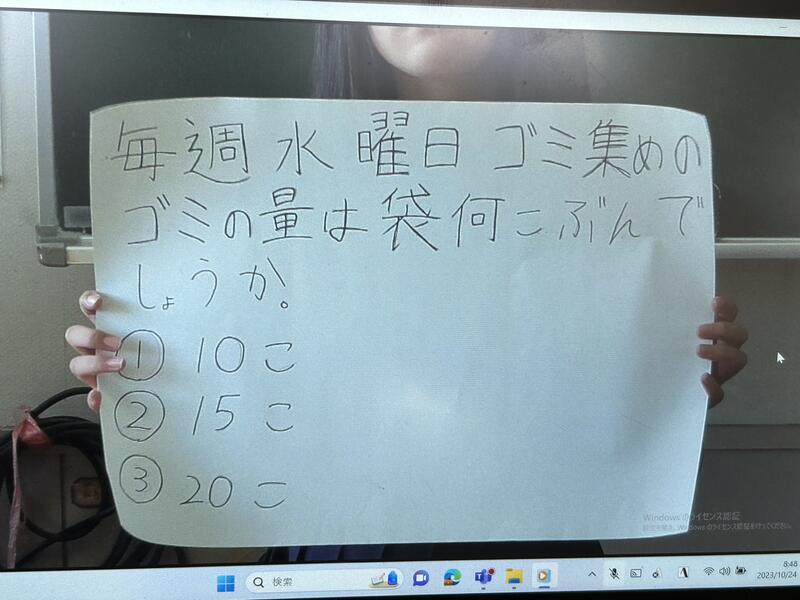 毎週水曜日ゴミ集めの
ゴミの量は袋何こぶんで
しょうか。
① 10こ
② 15こ
③ 20こ
Windows のライセンス認証
設定を開き、Windows のライセンス認証を行ってください。
検索
A
8:48
2023/10/24